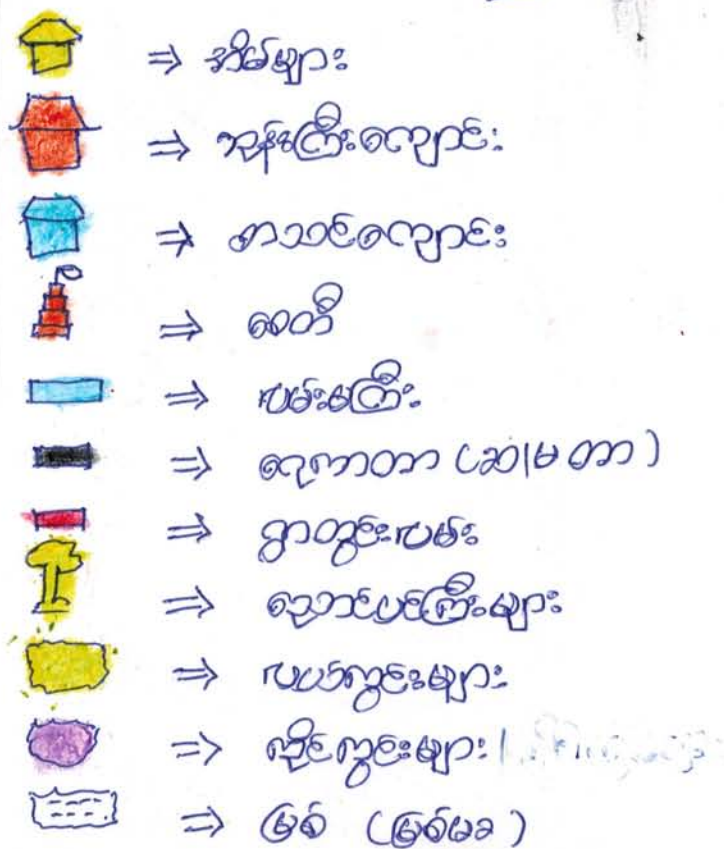 ⇒ အိမ်များ
⇒ ဘုန်းကြီးကျောင်း
⇒ စာသင်ကျောင်း
⇒ စေတီ
⇒ လမ်းမကြီး
⇒ ရေကာတာ (ဆ/မ တာ)
⇒ ရွာတွင်းလမ်း
⇒ ညောင်ပင်ကြီးများ
⇒ လယ်ကွင်းများ
⇒ ကိုင်းကွင်းများ
⇒ မြစ် (မြစ်မခ)